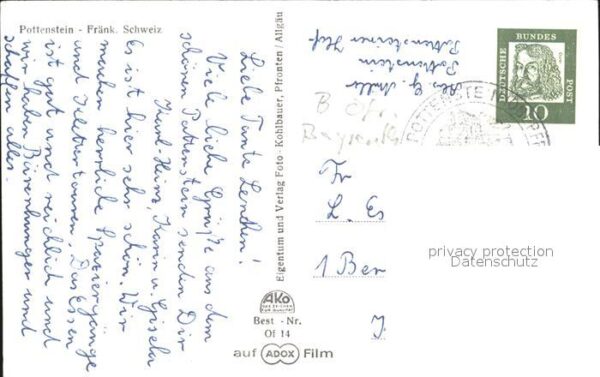 Pottenstein - Fränk. Schweiz
Liebe Tante Lenchen!
Viele liebe Grüße aus dem
schönen Pottenstein senden Dir
Karl-Heinz, Karin u. Gisela
Es ist hier sehr schön. Wir
machen herrliche Spaziergänge
und Klettertouren. Das Essen
ist gut und reichlich und
wir haben Bärenhunger und
schaffen alles.
Eigentum und Verlag Foto-Kohlbauer, Pfronten/Allgäu
AKO
Best - Nr.
Of 14
auf ADOX Film
Pottenstein
Pottensteiner Hof
DEUTSCHE BUNDES POST
10
POTTENSTEIN
Fr
L. Es
1 Ber
privacy protection
Datenschutz